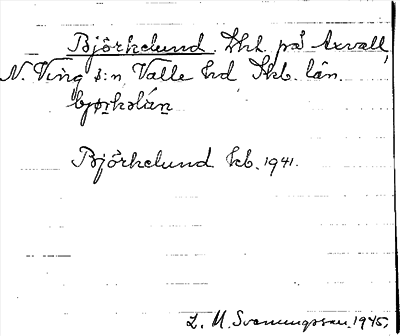 Björkelund. Lht. på Axvall,
N. Ving s:n, Valle hd Skb. län.
bjørkəlún
Björkelund kb. 1941.
L. M. Svanungsson. 1945,